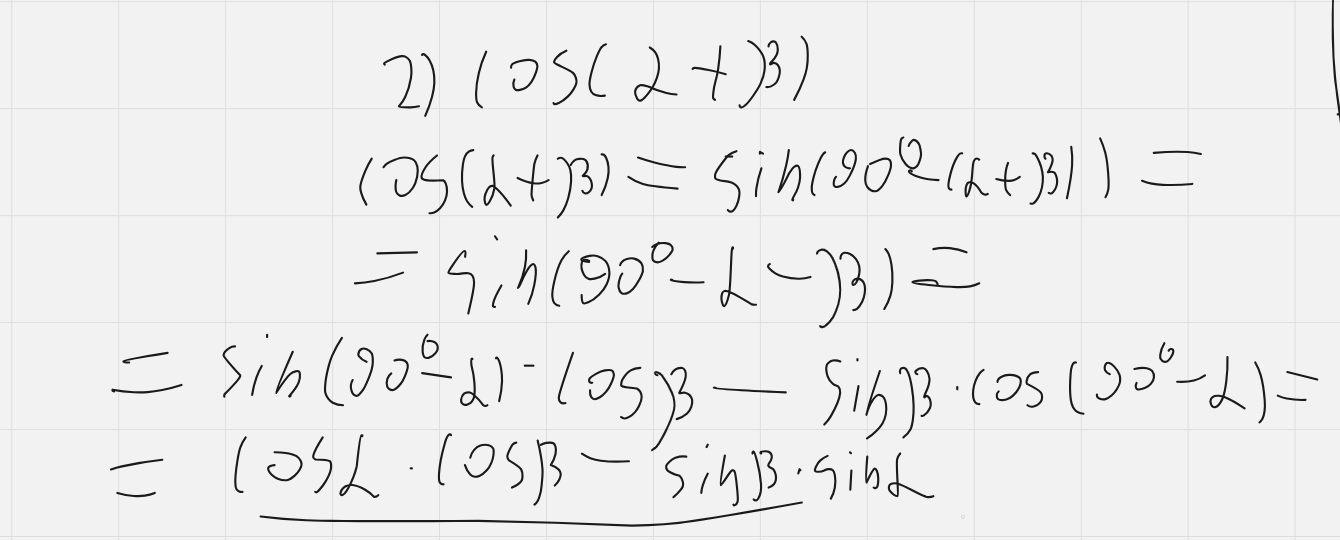 2) cos(α+β)
cos(α+β)=sin(90°-(α+β))=
=sin(90°-α-β)=
=sin(90°-α)·cosβ-sinβ·cos(90°-α)=
=cosα·cosβ-sinβ·sinα